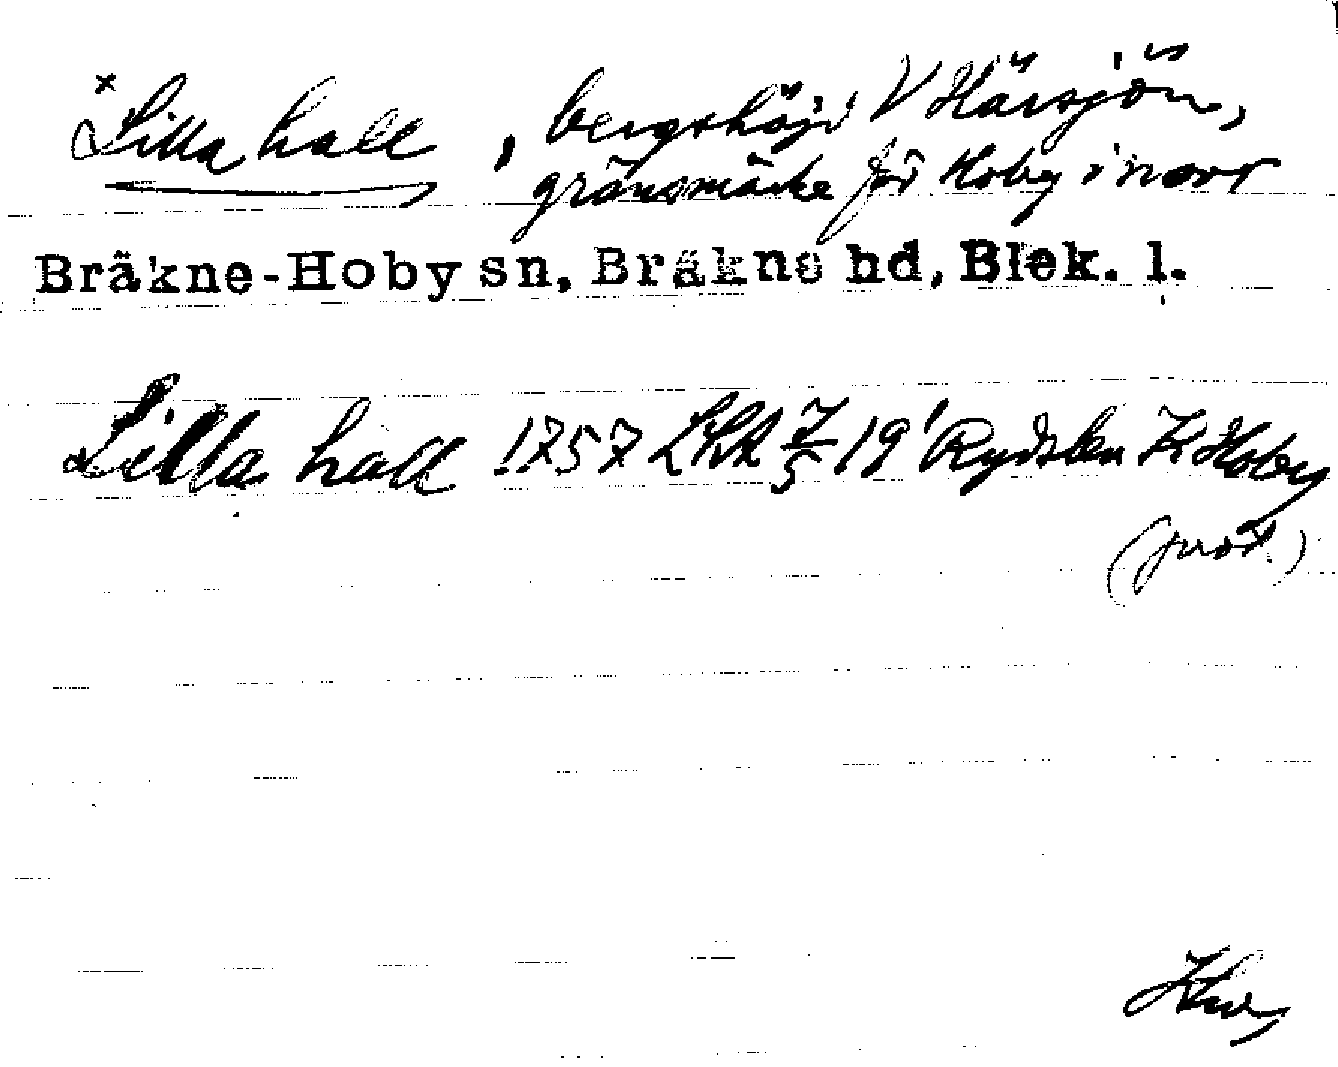 × Lilla hall, bergshöjd V Härsjön,
gränsmärke för Hoby i norr
Bräkne-Hoby sn, Bräkne hd, Blek. l.
Lilla hall 1757 LKA 7/5 19' K Hoby
(prot.)